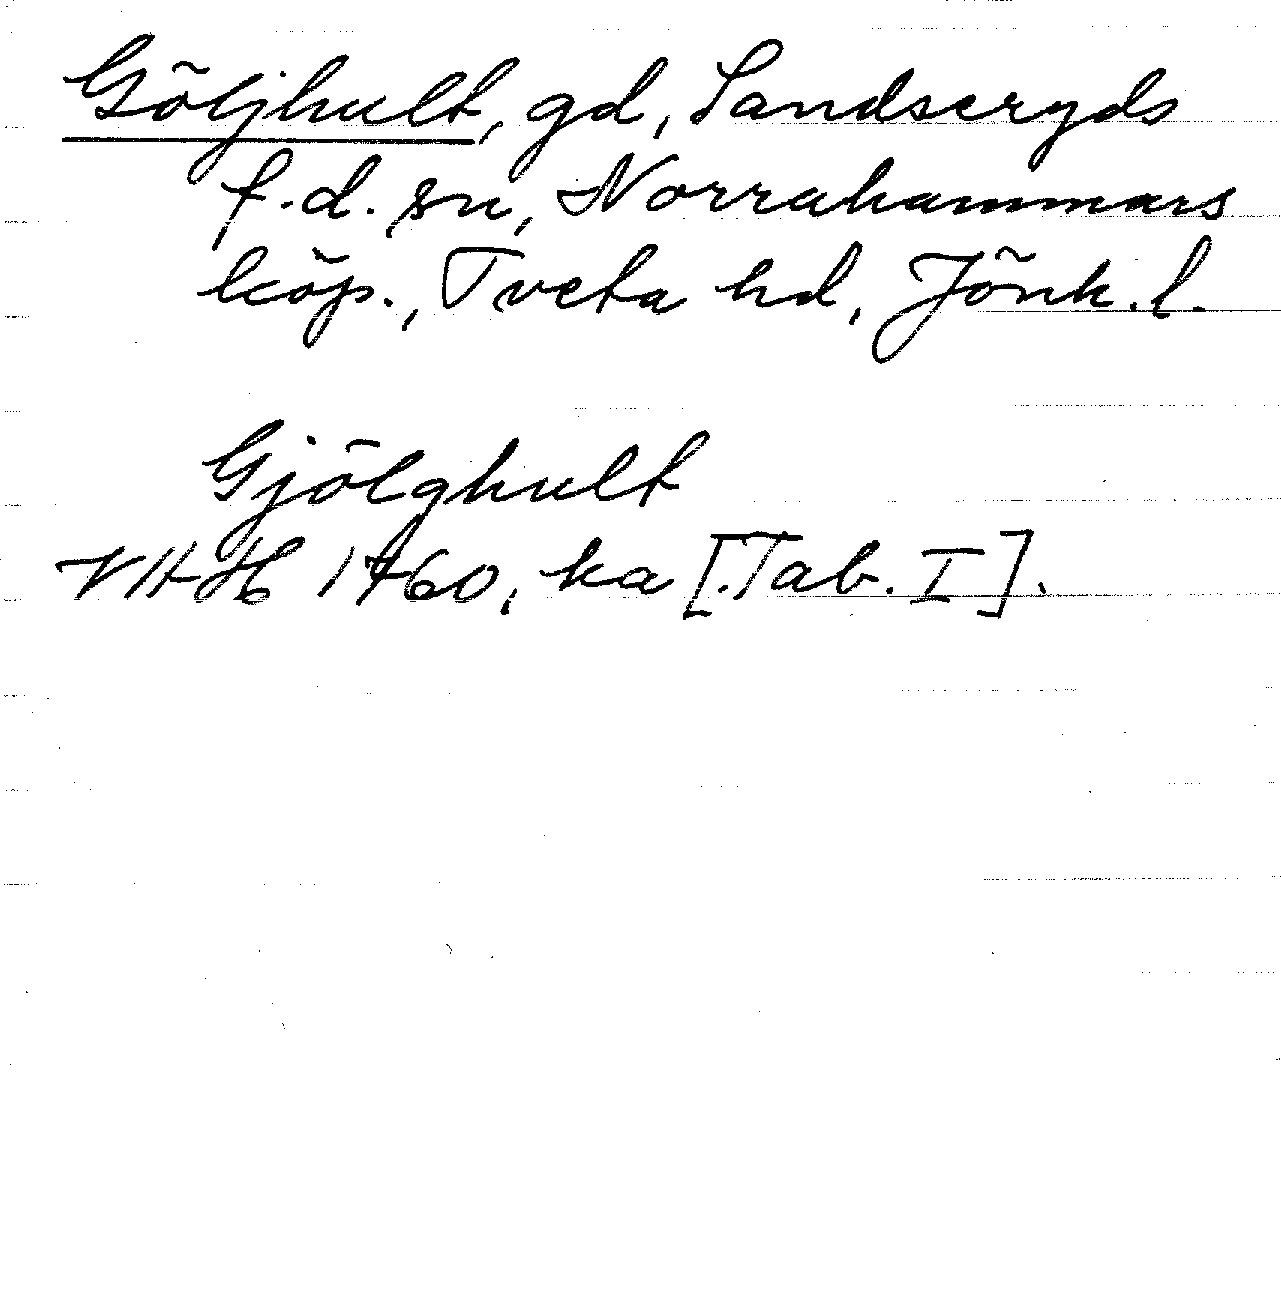 Göljhult, gd, Sandseryds
f.d. sn, Norrahammars
köp., Tveta hd, Jönk. l.
Gjölghult
VHAH 1760, ka [.Tab. I].